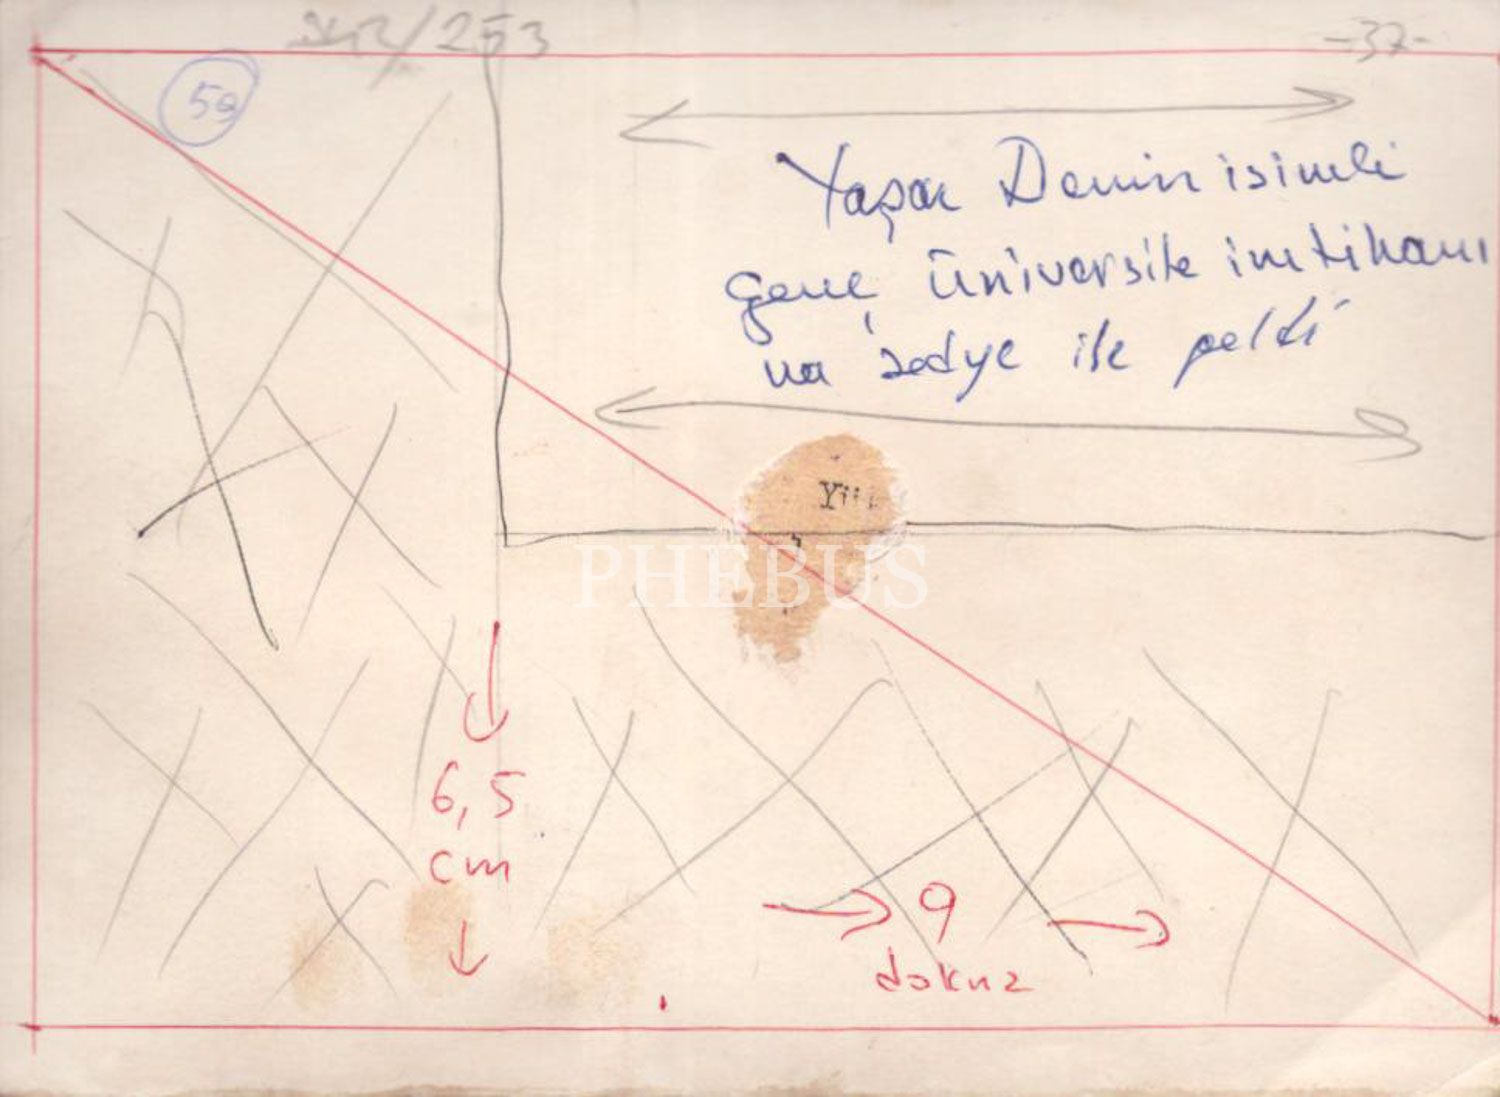 253
-37-
50
Yaşar Demir isimli
genç üniversite imtihanı
na sedye ile geldi
PHEBUS
6,5
cm
9
dokuz